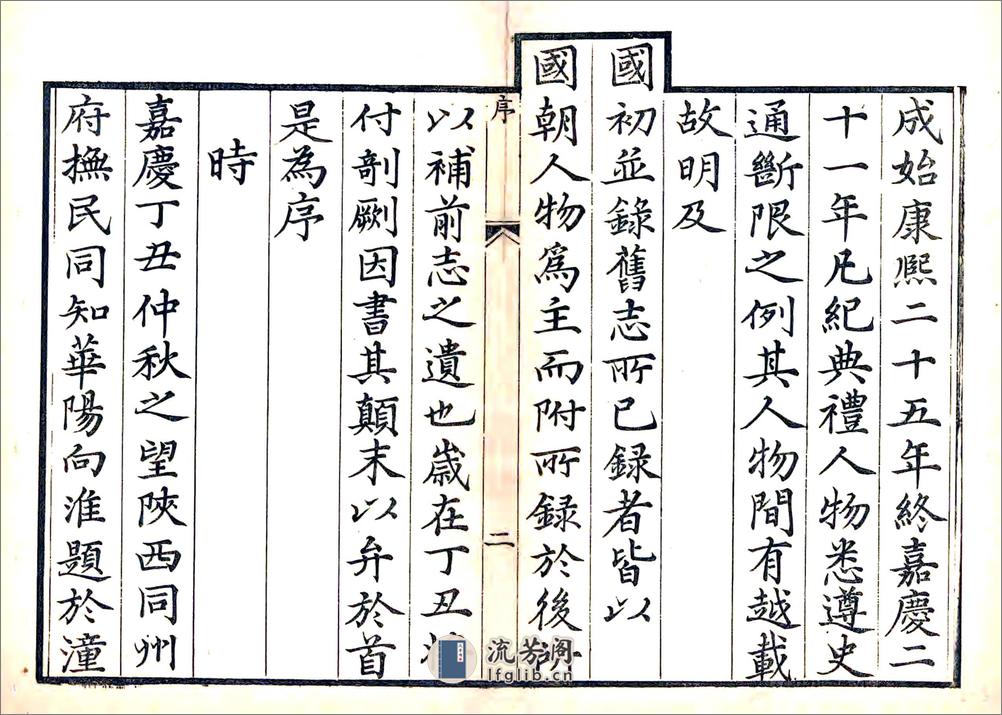 成始康熙二十五年終嘉慶二
十一年凡紀典禮人物悉遵史
通斷限之例其人物間有越載
故明及
國初並錄舊志所已録者皆以
國朝人物爲主而附所録於後所
序
二
以補前志之遺也歳在丁丑
付剞劂因書其顛末以弁於首
是為序
時
嘉慶丁丑仲秋之望陝西同州
府撫民同知華陽向淮題於潼
流芳阁
lfglib.cn